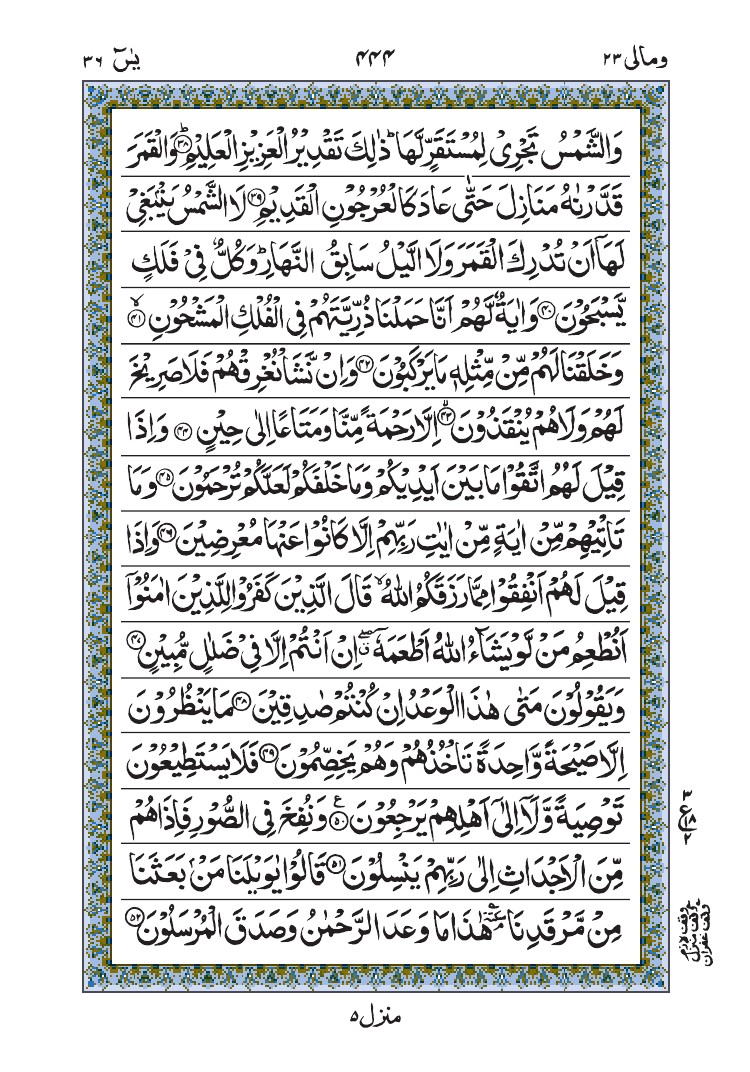 ومالی ۲۳ ۴۴۴ یٰسٓ ۳۶
وَالشَّمْسُ تَجْرِیْ لِمُسْتَقَرٍّ لَّهَا ؕ ذٰلِكَ تَقْدِیْرُ الْعَزِیْزِ الْعَلِیْمِ ؕ﴿۳۸﴾ وَالْقَمَرَ
قَدَّرْنٰهُ مَنَازِلَ حَتّٰی عَادَ كَالْعُرْجُوْنِ الْقَدِیْمِ ﴿۳۹﴾ لَا الشَّمْسُ یَنْۢبَغِیْ
لَهَاۤ اَنْ تُدْرِكَ الْقَمَرَ وَلَا الَّیْلُ سَابِقُ النَّهَارِ ؕ وَكُلٌّ فِیْ فَلَكٍ
یَّسْبَحُوْنَ ﴿۴۰﴾ وَاٰیَةٌ لَّهُمْ اَنَّا حَمَلْنَا ذُرِّیَّتَهُمْ فِی الْفُلْكِ الْمَشْحُوْنِ ۙ﴿۴۱﴾
وَخَلَقْنَا لَهُمْ مِّنْ مِّثْلِهٖ مَا یَرْكَبُوْنَ ﴿۴۲﴾ وَاِنْ نَّشَاْ نُغْرِقْهُمْ فَلَا صَرِیْخَ
لَهُمْ وَلَا هُمْ یُنْقَذُوْنَ ۙ﴿۴۳﴾ اِلَّا رَحْمَةً مِّنَّا وَمَتَاعًا اِلٰی حِیْنٍ ﴿۴۴﴾ وَاِذَا
قِیْلَ لَهُمُ اتَّقُوْا مَا بَیْنَ اَیْدِیْكُمْ وَمَا خَلْفَكُمْ لَعَلَّكُمْ تُرْحَمُوْنَ ﴿۴۵﴾ وَمَا
تَاْتِیْهِمْ مِّنْ اٰیَةٍ مِّنْ اٰیٰتِ رَبِّهِمْ اِلَّا كَانُوْا عَنْهَا مُعْرِضِیْنَ ﴿۴۶﴾ وَاِذَا
قِیْلَ لَهُمْ اَنْفِقُوْا مِمَّا رَزَقَكُمُ اللّٰهُ ۙ قَالَ الَّذِیْنَ كَفَرُوْا لِلَّذِیْنَ اٰمَنُوْۤا
اَنُطْعِمُ مَنْ لَّوْ یَشَآءُ اللّٰهُ اَطْعَمَهٗۤ ۖ اِنْ اَنْتُمْ اِلَّا فِیْ ضَلٰلٍ مُّبِیْنٍ ﴿۴۷﴾
وَیَقُوْلُوْنَ مَتٰی هٰذَا الْوَعْدُ اِنْ كُنْتُمْ صٰدِقِیْنَ ﴿۴۸﴾ مَا یَنْظُرُوْنَ
اِلَّا صَیْحَةً وَّاحِدَةً تَاْخُذُهُمْ وَهُمْ یَخِصِّمُوْنَ ﴿۴۹﴾ فَلَا یَسْتَطِیْعُوْنَ
تَوْصِیَةً وَّلَاۤ اِلٰۤی اَهْلِهِمْ یَرْجِعُوْنَ ۠﴿۵۰﴾ وَنُفِخَ فِی الصُّوْرِ فَاِذَا هُمْ
۳
ع
۱۸
۲
مِّنَ الْاَجْدَاثِ اِلٰی رَبِّهِمْ یَنْسِلُوْنَ ﴿۵۱﴾ قَالُوْا یٰوَیْلَنَا مَنْۢ بَعَثَنَا
مِنْ مَّرْقَدِنَا هٰذَا مَا وَعَدَ الرَّحْمٰنُ وَصَدَقَ الْمُرْسَلُوْنَ ﴿۵۲﴾
وقف لازم
وقف منزل
وقف غفران
منزل ۵